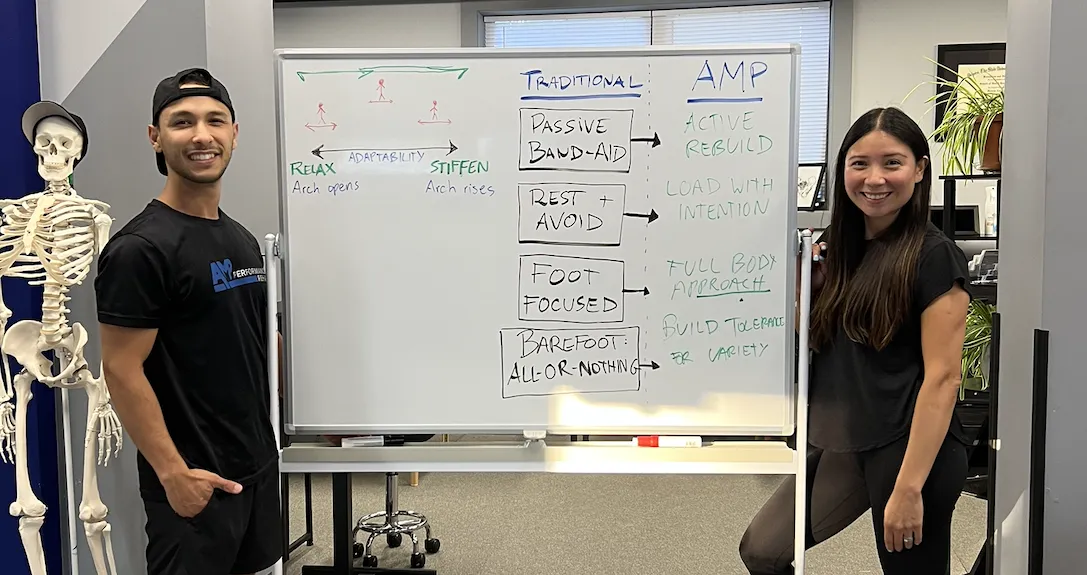 AMP PERFORMANCE
ADAPTABILITY
RELAX
Arch opens
STIFFEN
Arch rises
TRADITIONAL
PASSIVE
BAND-AID
REST +
AVOID
FOOT
FOCUSED
BAREFOOT:
ALL-OR-NOTHING
AMP
ACTIVE
REBUILD
LOAD WITH
INTENTION
FULL BODY
APPROACH
BUILD TOLERANCE
FOR VARIETY